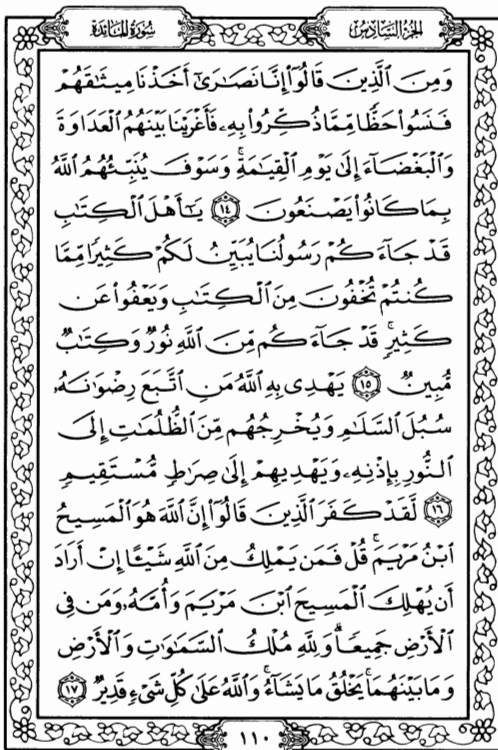 سُورَةُ المَائدة
الجزء السَّادِس
وَمِنَ ٱلَّذِينَ قَالُوٓا۟ إِنَّا نَصَـٰرَىٰٓ أَخَذْنَا مِيثَـٰقَهُمْ
فَنَسُوا۟ حَظًّا مِّمَّا ذُكِّرُوا۟ بِهِۦ فَأَغْرَيْنَا بَيْنَهُمُ ٱلْعَدَاوَةَ
وَٱلْبَغْضَآءَ إِلَىٰ يَوْمِ ٱلْقِيَـٰمَةِ ۚ وَسَوْفَ يُنَبِّئُهُمُ ٱللَّهُ
بِمَا كَانُوا۟ يَصْنَعُونَ ١٤ يَـٰٓأَهْلَ ٱلْكِتَـٰبِ
قَدْ جَآءَكُمْ رَسُولُنَا يُبَيِّنُ لَكُمْ كَثِيرًا مِّمَّا
كُنتُمْ تُخْفُونَ مِنَ ٱلْكِتَـٰبِ وَيَعْفُوا۟ عَن
كَثِيرٍ ۚ قَدْ جَآءَكُم مِّنَ ٱللَّهِ نُورٌ وَكِتَـٰبٌ
مُّبِينٌ ١٥ يَهْدِى بِهِ ٱللَّهُ مَنِ ٱتَّبَعَ رِضْوَٰنَهُۥ
سُبُلَ ٱلسَّلَـٰمِ وَيُخْرِجُهُم مِّنَ ٱلظُّلُمَـٰتِ إِلَى
ٱلنُّورِ بِإِذْنِهِۦ وَيَهْدِيهِمْ إِلَىٰ صِرَٰطٍ مُّسْتَقِيمٍ
١٦ لَّقَدْ كَفَرَ ٱلَّذِينَ قَالُوٓا۟ إِنَّ ٱللَّهَ هُوَ ٱلْمَسِيحُ
ٱبْنُ مَرْيَمَ ۚ قُلْ فَمَن يَمْلِكُ مِنَ ٱللَّهِ شَيْـًٔا إِنْ أَرَادَ
أَن يُهْلِكَ ٱلْمَسِيحَ ٱبْنَ مَرْيَمَ وَأُمَّهُۥ وَمَن فِى
ٱلْأَرْضِ جَمِيعًا ۗ وَلِلَّهِ مُلْكُ ٱلسَّمَـٰوَٰتِ وَٱلْأَرْضِ
وَمَا بَيْنَهُمَا ۚ يَخْلُقُ مَا يَشَآءُ ۚ وَٱللَّهُ عَلَىٰ كُلِّ شَىْءٍ قَدِيرٌ ١٧
١١٠